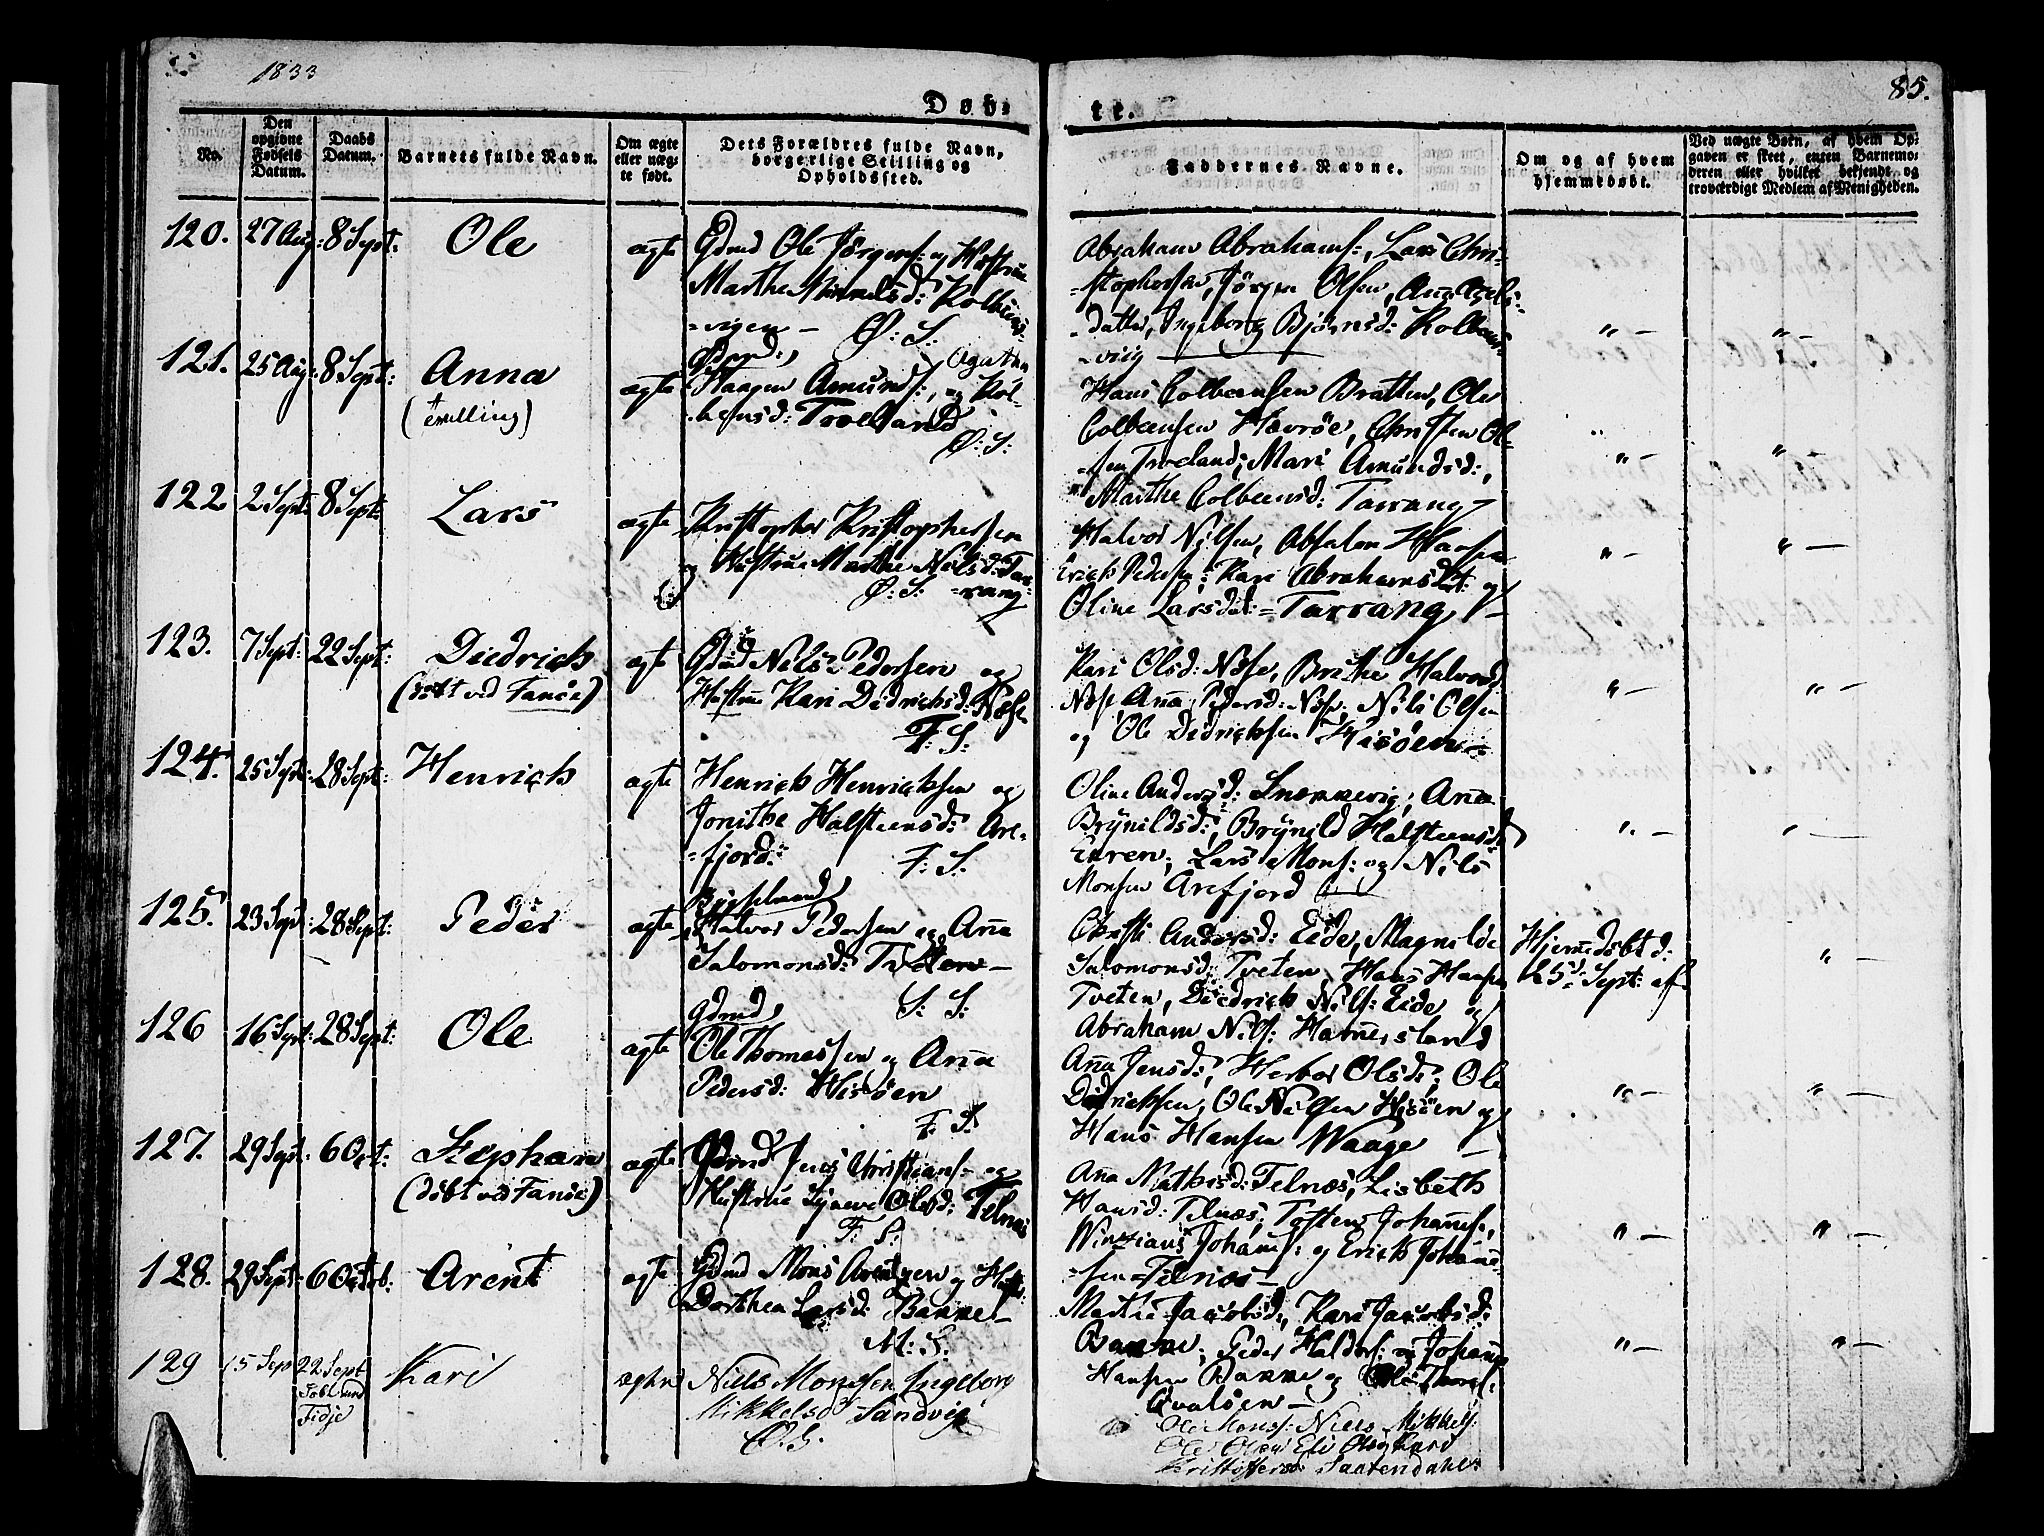 1833
85.
Døb-
te.
No.
Den
opgivne
Fødsels
Datum.
Daabs
Datum.
Barnets fulde Navn.
Om ægte
eller uæg-
te født.
Dets Forældres fulde Navn,
borgerlige Stilling og
Opholdssted.
Faddernes Navne.
Om og af hvem
hjemmedøbt.
Ved uægte Børn, af hvem Op-
gaven er skeet, enten Barnemo-
deren eller hvilket bekjendt og
troværdigt Medlem af Menigheden.
120. 27 Aug: 8 Sept: Ole ægte
Gdmd Ole Jörgens: og Hustrue
Marthe Kolbens-
=vigen – Ø: S:
Abraham Abrahams:, Lars Chri-
=stophersen, Jörgen Olsen, Aña
=datter, Ingeborg Björnsd: Kolbens-
=vig
" – " –
121. 25 Aug: 8 Sept: Anna
(tvilling)
ægte
Gdmd: Agatha
Haagen Amunds:, og Kol-
=bensd: Troeland
Ø: S:
Hans Colbensen Bratten, Ole
Colbensen Hevröe, Christen Ol-
=sen Troeland, Mari Amundsd:,
Marthe Colbensd: Tarrang
" – " –
122 2 Sept: 8 Sept: Lars ægte
Kristopher Kristophersen
og Hustrue Marthe Nilsd: Tar-
Ø: S: =rang
Halvor Nilsen, Absalon Hansen
Erich Pedersen, Kari Abrahamsdt: og
Oline Larsdt: = Tarrang
" – " –
123. 7 Sept: 22 Sept: Diedrich
(døbt ved Fanöe)
ægte
Gdmd Nils Pedersen og
Hustru Kari Didrichsd: Næse
F: S:
Kari Olsd: Næse, Brithe Halvorsd
Næse, Aña Pedersd: Næse, Nils Olsen
og Ole Didrichsen Hisöen –
" – " –
124. 25 Sept: 28 Sept: Henrich ægte
Henrich Henrichsen og
Jonithe Halsteensd: Are-
=fjord: F: S:
Oline Andersd: Snekkevig, Aña
Brÿnildsd:, Brÿnild Halsteens:
Euren, Lars Mons: og Nils
Monsen Arefjord
" – " –
125. 23 Sept: 28 Sept: Peder ægte
Halvor Pedersen og Aña
Salomonsd: Tveten –
S: S:
Christi Andersd: Eide, Magnilde
Salomonsd: Tveten, Hans Hansen
Tveten, Diedrich Nils: Eide og
Abraham Nils: Hamersland
Hjemedøbt d:
25d: Sept: af
" –
126 16 Sept: 28 Sept: Ole ægte
Gdmd,
Ole Thomassen og Aña
Pedersd: Hisöen
F: S:
Aña Jensd:, Herbor Olsd:, Ole
Didrichsen, Ole Nilsen Hisöen og
Hans Hansen Waage
" – " –
127. 29 Sept: 6 Oct: Stephan
(døbt ved Fanöe)
ægte
Gdmd Jens Christians: og
Hustrue Syneve Olsd: Telnæs
F: S:
Aña Mathisd: Telnæs, Lisbeth
Hansd: Telnæs, Tosten Johañs:,
Johañs: og Erich Johañe-
=sen Telnæs –
" – " –
128. 29 Sept: 6 Octob: Arent ægte
Gdmd Mons Arentzen og Hust:
Dorthea Larsd: Bakke –
M: S:
Marthe Jacobsd:, Kari Jacobsd:
Bakke, Peder Haldors: og Johañes
Hansen Bakke, og
Qvalöen –
" – " –
129 15 Sep 22 Sept
døbt ved
Tidje
Kari ægte
Niels Monssen Ingeborg
Mikkelsd Sandvig
Ø. S.
Ole Mons: Niels Mikkels:
Ole Olsen Eli Olsd Kari
Kristoffersd: Saatendahl: